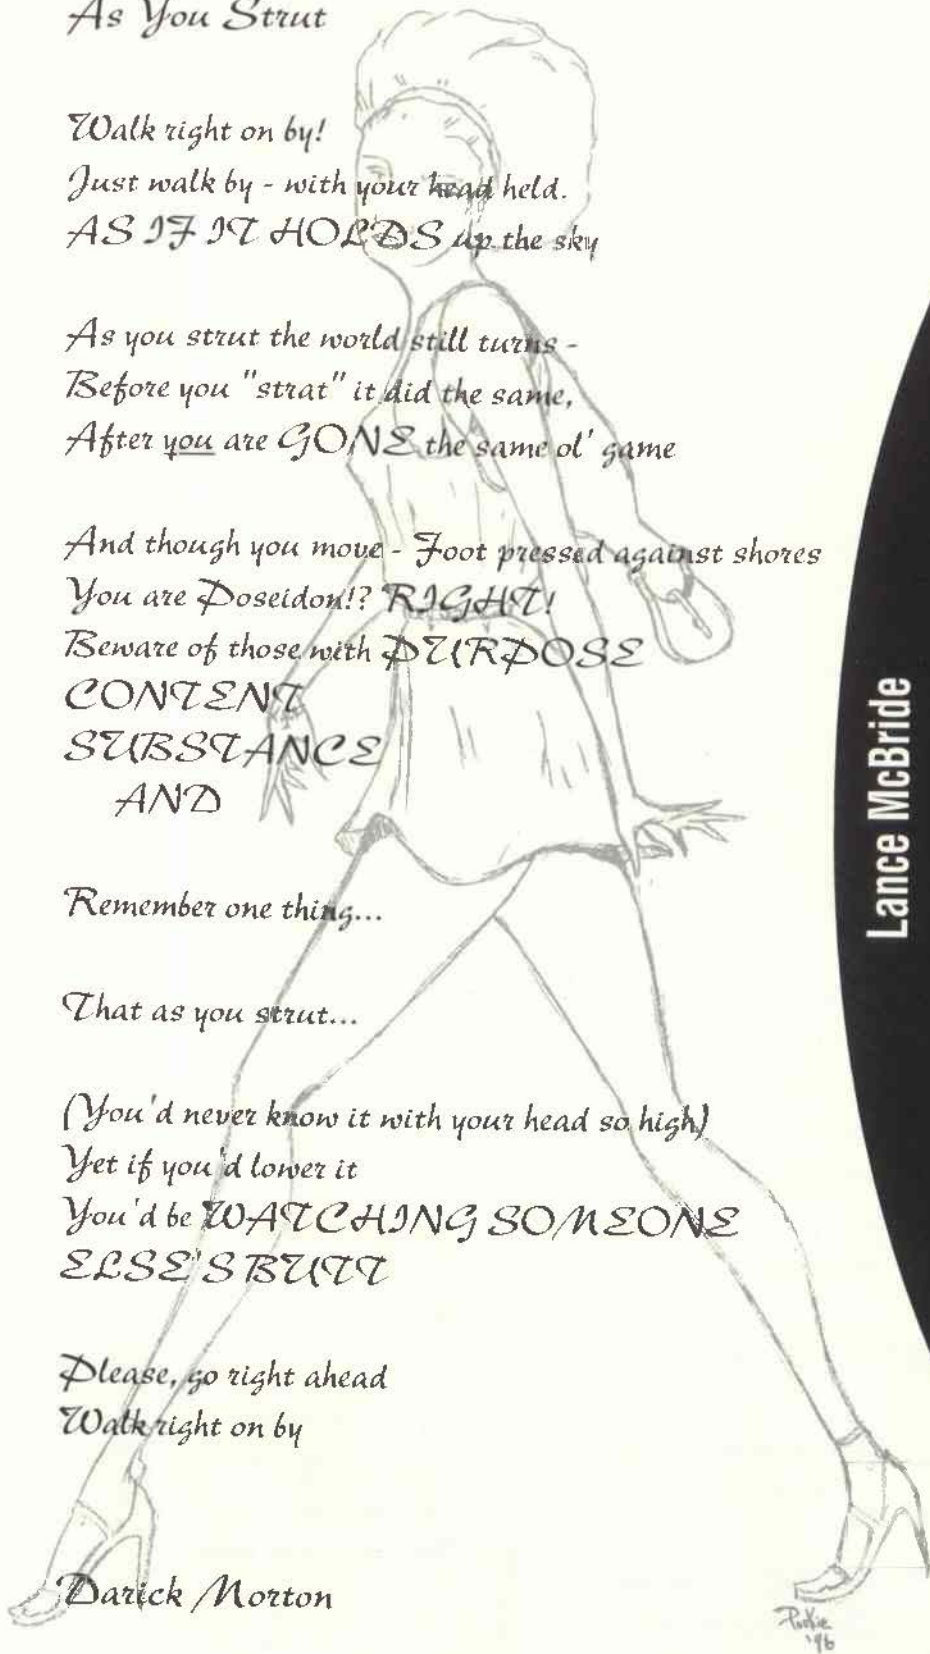 As You Strut
Walk right on by!
Just walk by - with your head held.
AS IF IT HOLDS up the sky
As you strut the world still turns -
Before you "strat" it did the same,
After you are GONE the same ol' game
And though you move - Foot pressed against shores
You are Poseidon!? RIGHT!
Beware of those with PURPOSE
CONTENT
SUBSTANCE
AND
Remember one thing...
That as you strut...
(You'd never know it with your head so high)
Yet if you'd lower it
You'd be WATCHING SOMEONE
ELSE'S BUTT
Please, go right ahead
Walk right on by
Darick Morton
Lance McBride
'96